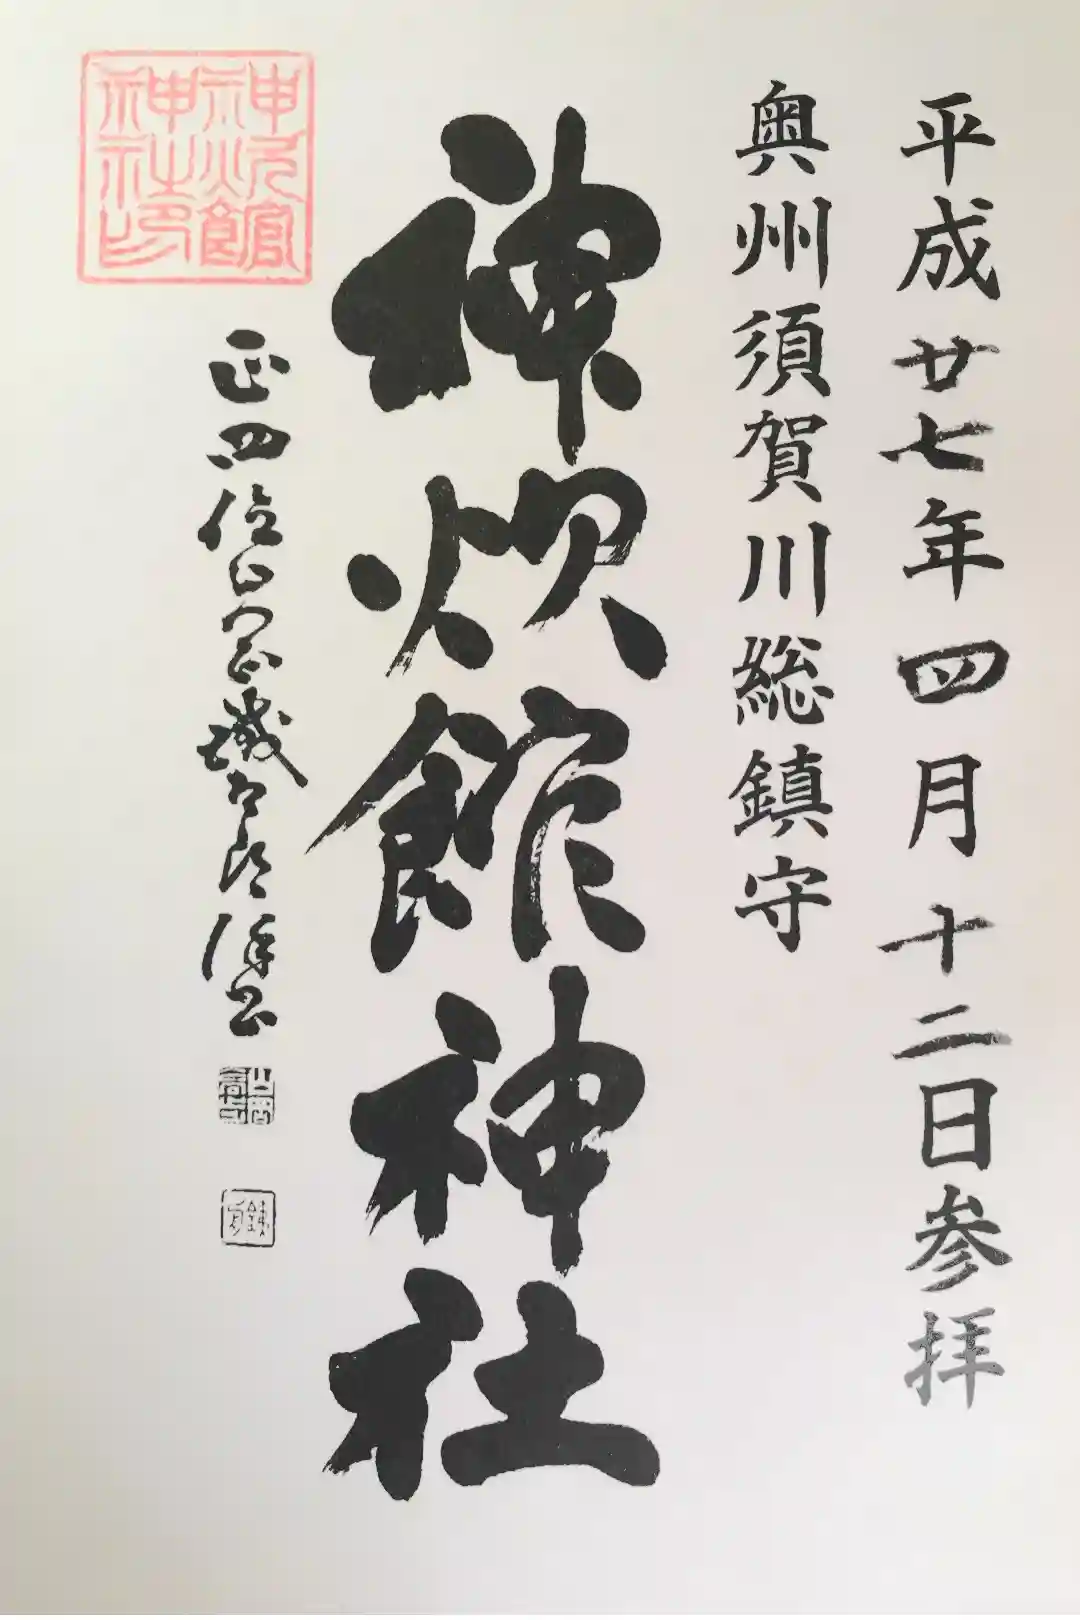 平成廿七年四月十二日参拝
奥州須賀川総鎮守
神炊館神社
神炊館神社印
正四位山岡鐵太郎 書